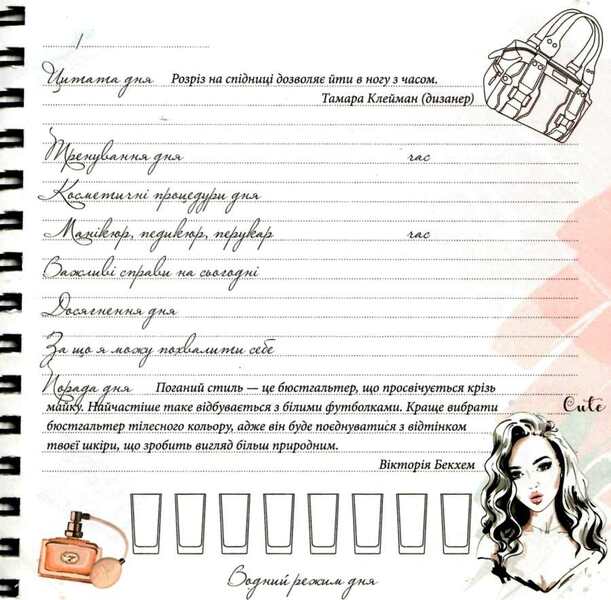 /
Цитата дня Розріз на спідниці дозволяє йти в ногу з часом.
Тамара Клейман (дизанер)
Тренування дня час
Косметичні процедури дня
Манікюр, педикюр, перукар час
Важливі справи на сьогодні
Досягнення дня
За що я можу похвалити себе
Порада дня Поганий стиль — це бюстгальтер, що просвічується крізь
майку. Найчастіше таке відбувається з білими футболками. Краще вибрати
бюстгальтер тілесного кольору, адже він буде поєднуватися з відтінком
твоєї шкіри, що зробить вигляд більш природним.
Вікторія Бекхем
Cute
Водний режим дня